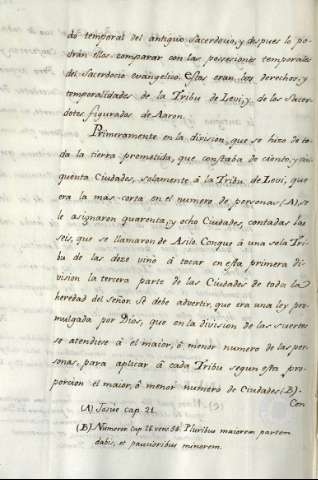 do temporal del antiguo Sacerdocio, y despues lo po-
drán ellos comparar con las possesiones temporales
del sacerdocio evangelico. Estas eran los derechos, y
temporalidades de la Tribu de Levi, y de los Sacer-
dotes figurados de Aaron.
Primeramente en la division, que se hizo de to-
da la tierra prometida, que constaba de ciento, y cin-
quenta Ciudades, solamente â la Tribu de Levi, que
era la más corta en el numero de personas (A) se
le asignaron quarenta, y ocho Ciudades, contadas las
seis, que se llamaron de Asilo. Conque â una sola Tri-
bu de las doze vino â tocar en esta primera di-
vision la tercera parte de las Ciudades de toda la
heredad del señor. Se debe advertir, que era una ley pro-
mulgada por Dios, que en la division de las suertes
se atendiese â el maior, ô menor numero de las per-
sonas, para aplicar â cada Tribu segun esta pro-
porcion el maior, ô menor numero de Ciudades (B).
Con
(A) Josue cap. 21.
(B) Numeror. cap. 26. vers. 54. Pluribus maiorem partem
dabis, et paucioribus minorem.